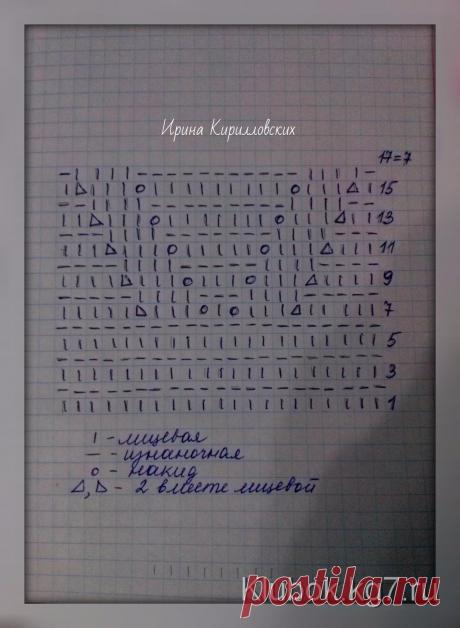 Ирина Кирилловских
17=7
15
13
11
9
7
5
3
1
| - лицевая
— - изнаночная
o - накид
◿, ◺ - 2 вместе лицевой
postila.ru